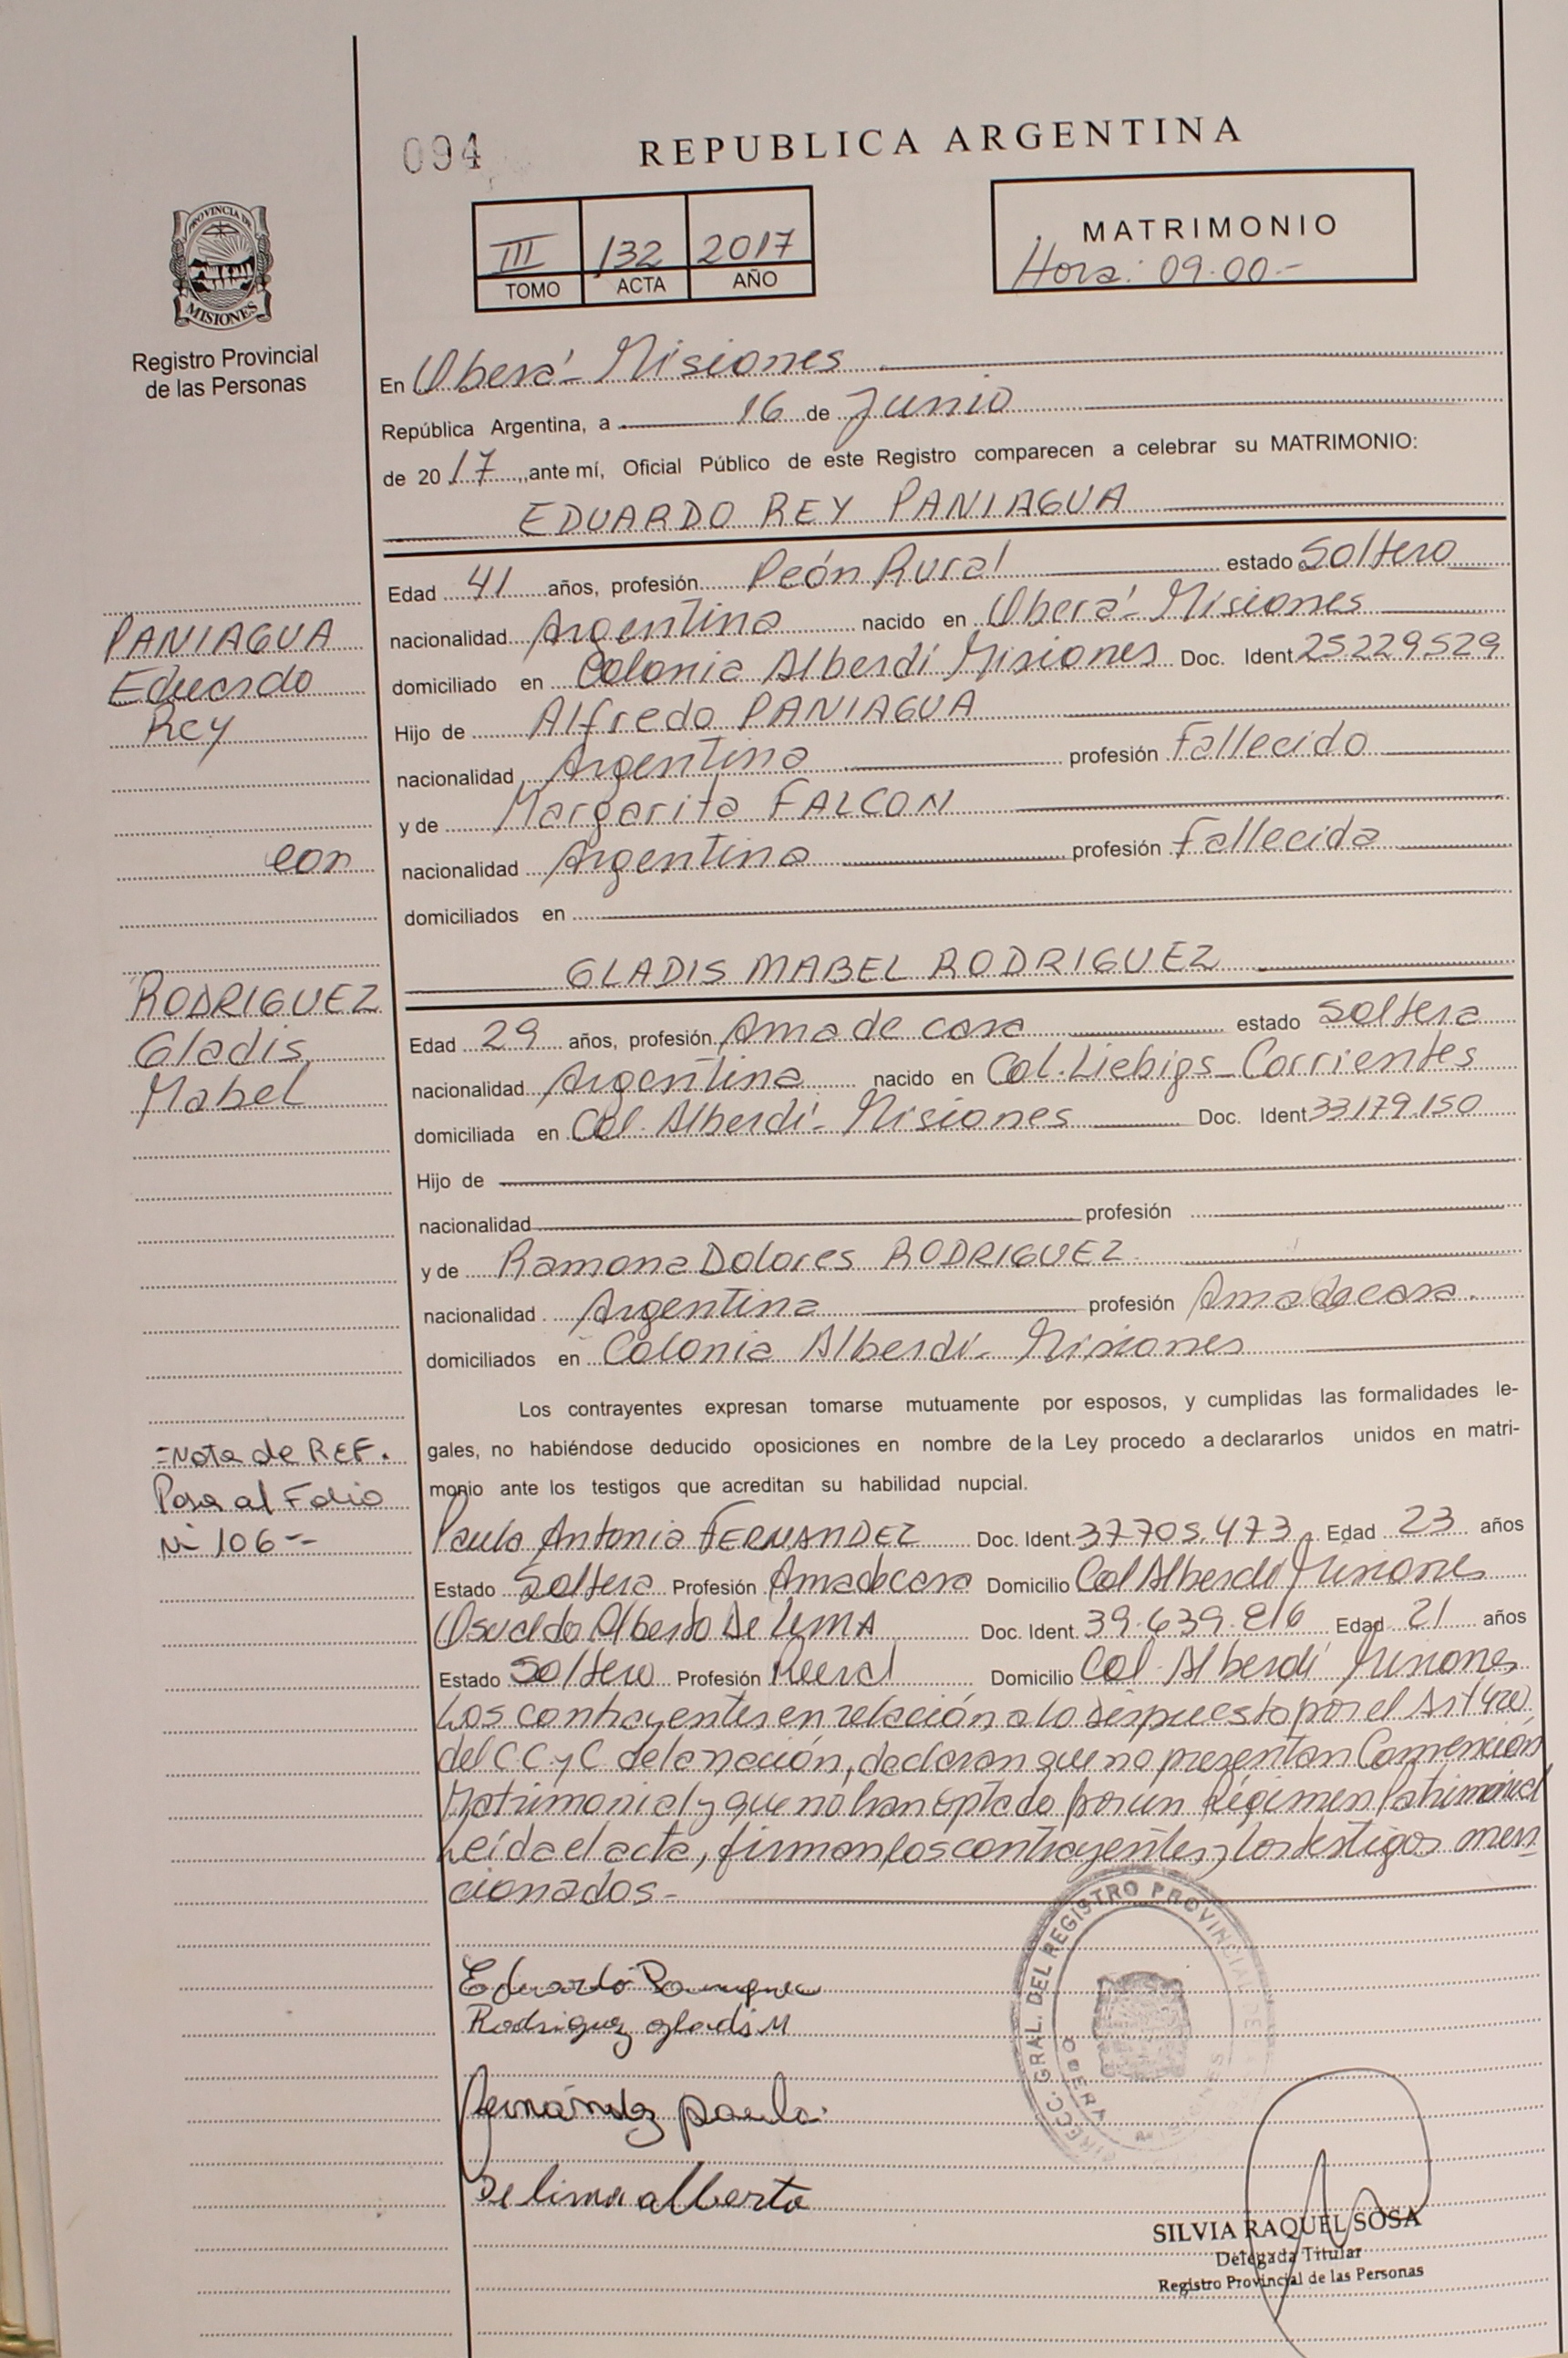 094
REPUBLICA ARGENTINA
III 132 2017
TOMO ACTA AÑO
MATRIMONIO
Hora: 09.00.-
PROVINCIA DE
MISIONES
Registro Provincial
de las Personas
En Oberá - Misiones
República Argentina, a 16 de Junio
de 2017, ante mí, Oficial Público de este Registro comparecen a celebrar su MATRIMONIO:
EDUARDO REY PANIAGUA
Edad 41 años, profesión Peón Rural estado Soltero
nacionalidad Argentina nacido en Oberá - Misiones
domiciliado en Colonia Alberdi Misiones Doc. Ident 25229529
Hijo de Alfredo PANIAGUA
nacionalidad Argentina profesión Fallecido
y de Margarita FALCON
nacionalidad Argentina profesión Fallecida
domiciliados en
PANIAGUA
Eduardo
Rey
con
RODRIGUEZ
Gladis
Mabel
GLADIS MABEL RODRIGUEZ
Edad 29 años, profesión Ama de casa estado soltera
nacionalidad Argentina nacido en Col. Liebigs - Corrientes
domiciliada en Col. Alberdi - Misiones Doc. Ident 33179150
Hijo de
nacionalidad profesión
y de Ramona Dolores RODRIGUEZ
nacionalidad Argentina profesión Ama de casa.
domiciliados en Colonia Alberdi - Misiones
Los contrayentes expresan tomarse mutuamente por esposos, y cumplidas las formalidades le-
gales, no habiéndose deducido oposiciones en nombre de la Ley procedo a declararlos unidos en matri-
monio ante los testigos que acreditan su habilidad nupcial.
=Nota de REF.
Pasa al Folio
Nº 106 --
Paula Antonia FERNANDEZ Doc. Ident. 37705.473 Edad 23 años
Estado Soltera Profesión Ama de casa Domicilio Col Alberdi Misiones
Osvaldo Alberto De LIMA Doc. Ident. 39.639.816 Edad 21 años
Estado Soltero Profesión Rural Domicilio Col. Alberdi Misiones
Los contrayentes en relación a lo dispuesto por el Art 420
del C.C. y C de la nación, declaran que no presentan Convención
Matrimonial y que no han optado por un Régimen Patrimonial
Leída el acta, firman los contrayentes y los testigos men
cionados.-
Eduardo Paniagua
Rodriguez gladis M
fernández paula
De lima alberto
DIRECC. GRAL. DEL REGISTRO PROVINCIAL DE
OBERA
MISIONES
SILVIA RAQUEL SOSA
Delegada Titular
Registro Provincial de las Personas